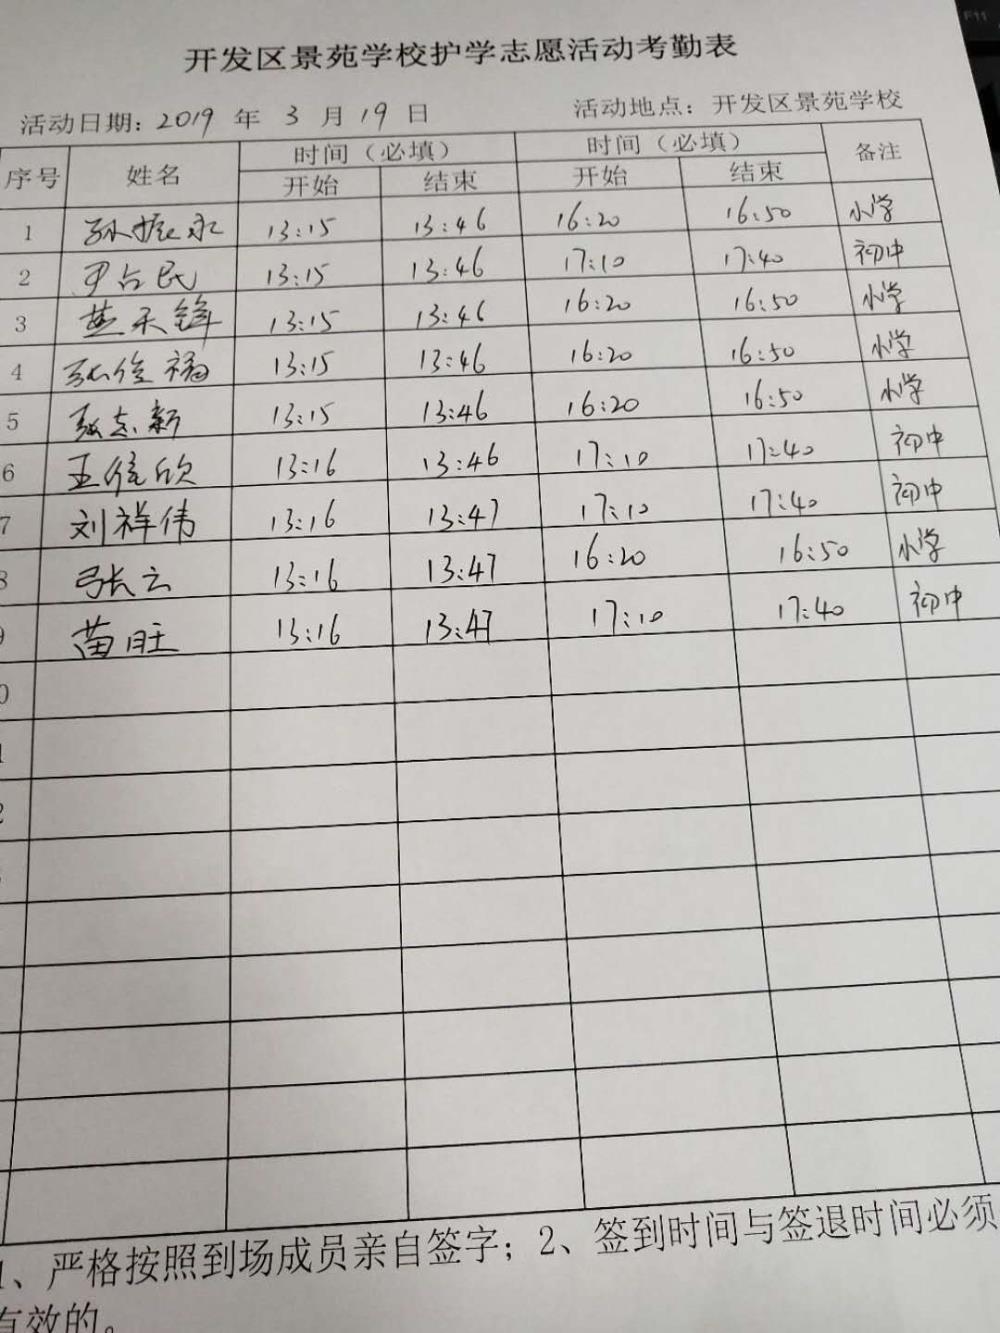 开发区景苑学校护学志愿活动考勤表
活动日期：2019 年 3 月 19 日 活动地点：开发区景苑学校
序号 姓名 时间（必填） 时间（必填） 备注
开始 结束 开始 结束
1 孙振永 13:15 13:46 16:20 16:50 小学
2 尹占民 13:15 13:46 17:10 17:40 初中
3 天锋 13:15 13:46 16:20 16:50 小学
4 张俊福 13:15 13:46 16:20 16:50 小学
5 张志新 13:15 13:46 16:20 16:50 小学
6 王俊欣 13:16 13:46 17:10 17:40 初中
7 刘祥伟 13:16 13:47 17:10 17:40 初中
8 张云 13:16 13:47 16:20 16:50 小学
9 苗旺 13:16 13:47 17:10 17:40 初中
0
1
2
1、严格按照到场成员亲自签字；2、签到时间与签退时间必须
有效的。